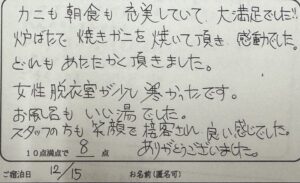 カニも朝食も充実していて、大満足でした!!
炉ばたで焼きガニを焼いて頂き、感動でした。
どれもあたたかく頂きました。
女性脱衣室が少し寒かったです。
お風呂もいい湯でした。
スタッフの方も笑顔で接客され良い感じでした。
10点満点で 8 点
ありがとうございました。
ご宿泊日 12/15 お名前(匿名可)